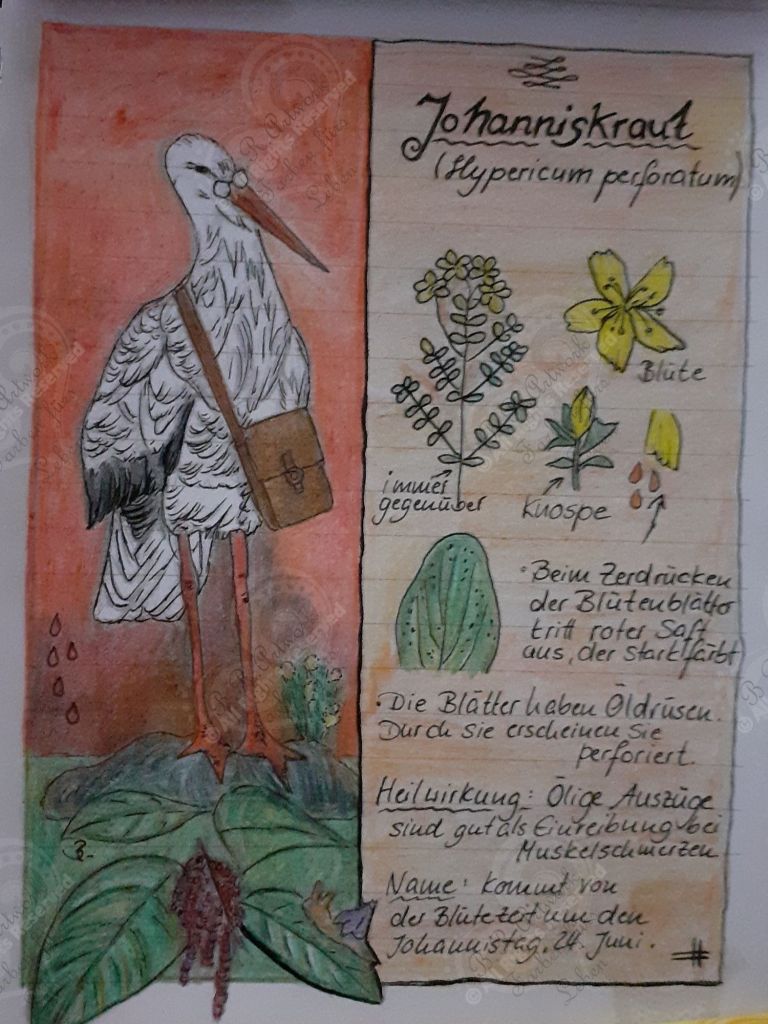 Johanniskraut
(Hypericum perforatum)
Blüte
immer
gegenüber
Knospe
• Beim Zerdrücken
der Blütenblätter
tritt roter Saft
aus, der stark färbt
• Die Blätter haben Öldrüsen.
Durch sie erscheinen sie
perforiert.
Heilwirkung: Ölige Auszüge
sind gut als Einreibung bei
Muskelschmerzen
Name: kommt von
der Blütezeit um den
Johannistag. 24. Juni.
© B. R. Artwork
All Rights Reserved
Farben fürs
Leben